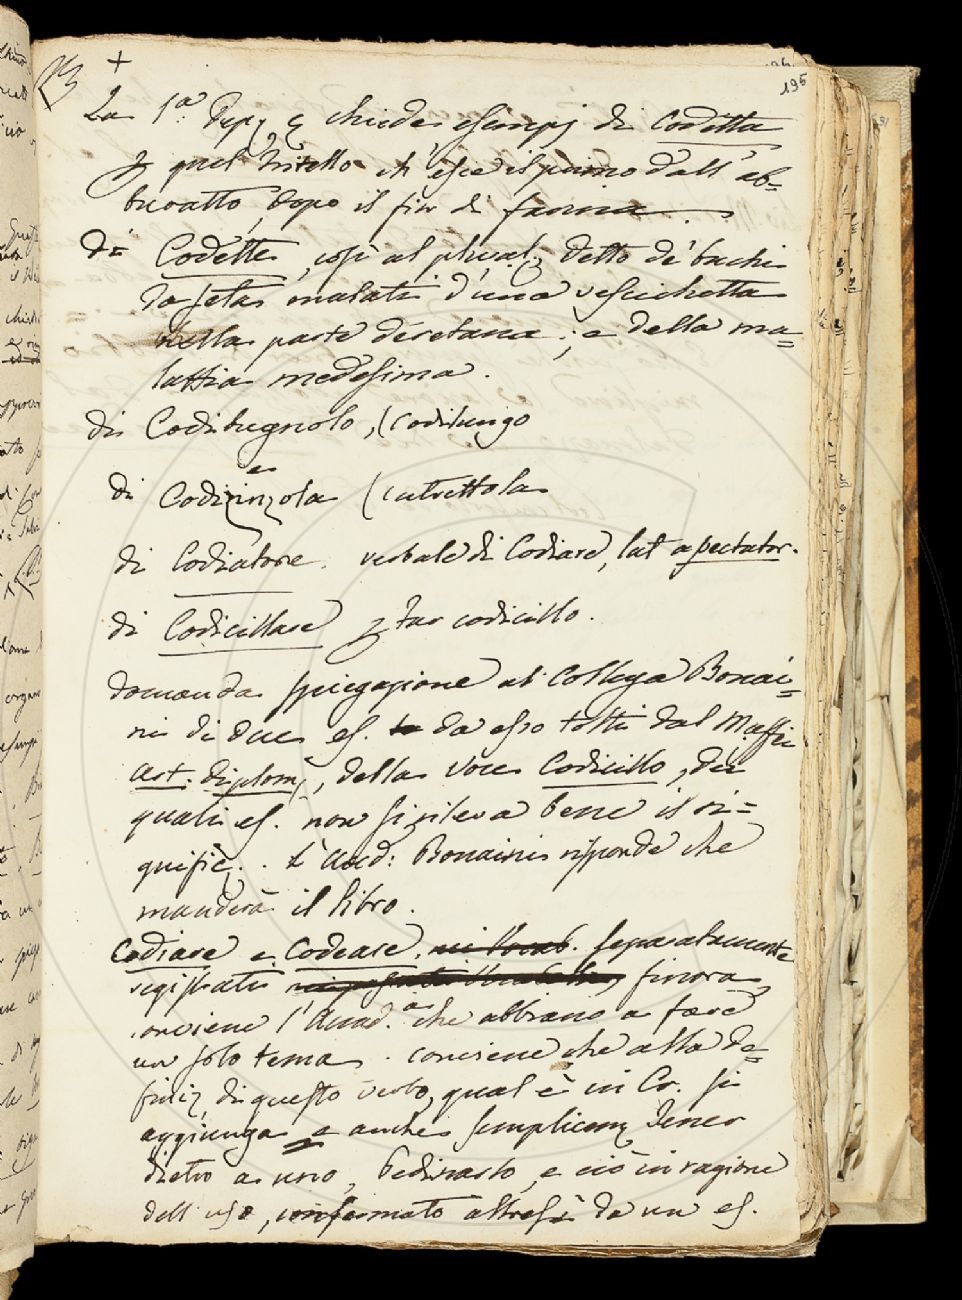 +
195
La 1.a Dep.e chiede esempj di Codetta
p quel tritello ch'esce il primo dall'ab=
buratto, dopo il fior di farina.
di Codette, così al plural, detto de' bachi
da seta malati d'una vescichetta
nella parte deretana; e della ma=
lattia medesima.
di Codibugnolo, (codilungo
di Codizinzola (cutrettola
di Codiatore verbale di Codiare, lat. aspectator.
di Codicillare p far codicillo.
domanda spiegazione al Collega Bonai=
ni di due es. da esso tolti dal Maffei
art. diplom., della voce Codicillo, dei
quali es. non si rileva bene il si=
gnific. L'Accad: Bonaini risponde che
manderà il libro.
Codiare e Codeare. separatamente
registrati finora,
conviene l'Accad.a che abbiano a fare
un solo tema. conviene che alla de=
finiz. di questo verbo, qual è in Cr. si
aggiunga e anche semplicem. Tener
dietro a uno, Pedinarlo, e ciò in ragione
dell'uso, confermato altresì da un es.